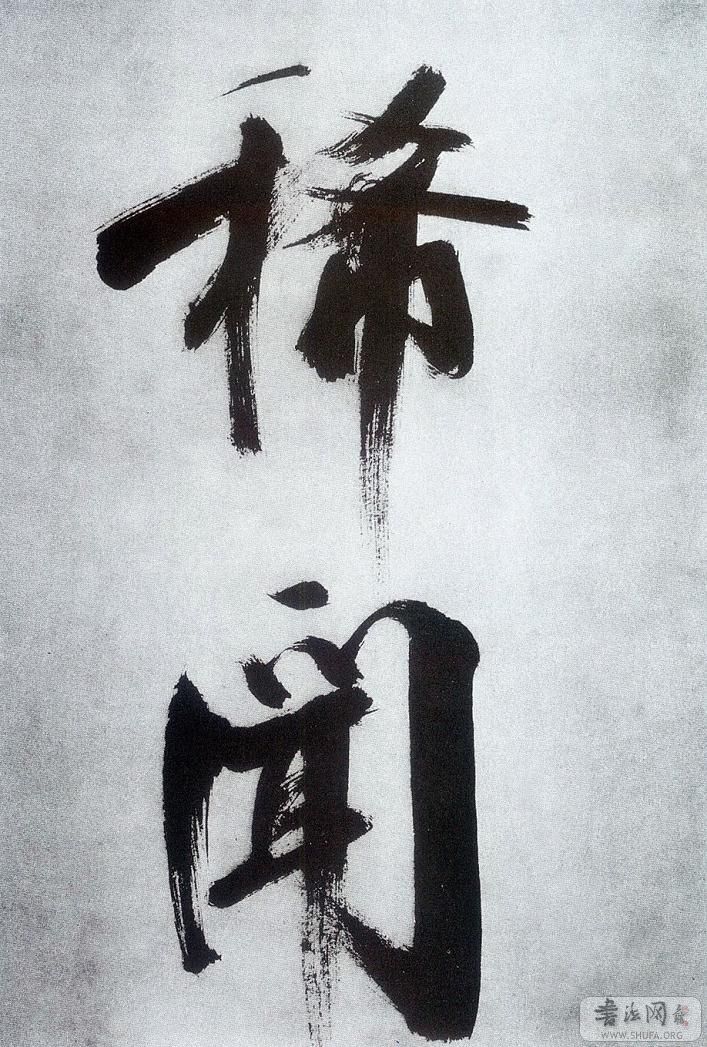 稀
闻
书法网
WWW.SHUFA.ORG